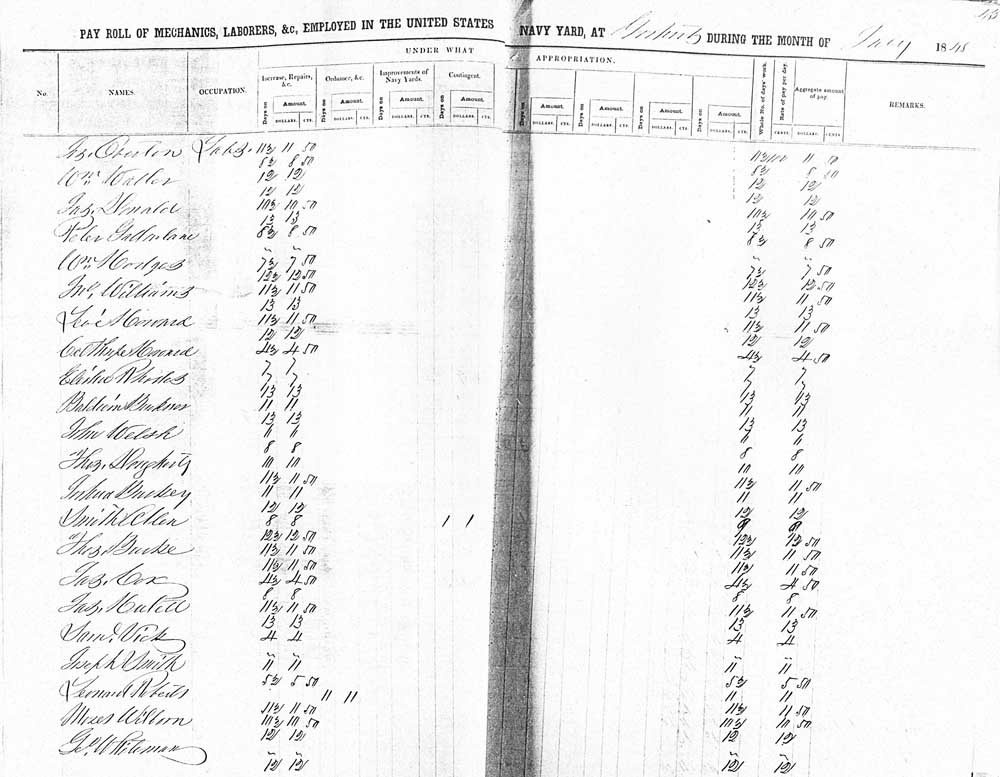 PAY ROLL OF MECHANICS, LABORERS, &c, EMPLOYED IN THE UNITED STATES NAVY YARD, AT DURING THE MONTH OF July 1848
UNDER WHAT APPROPRIATION.
No. NAMES. OCCUPATION. Increase, Repairs, &c. Ordnance, &c. Improvements of Navy Yards. Contingent. Whole No. of days' work. Rate of pay per day. Aggregate amount of pay. REMARKS.
Days on Amount. Days on Amount. Days on Amount. Days on Amount. Days on Amount. Days on Amount. Days on Amount.
DOLLARS. CTS. DOLLARS. CTS. DOLLARS. CTS. DOLLARS. CTS. DOLLARS. CTS. DOLLARS. CTS. DOLLARS. CTS. CENTS DOLLARS CENTS
Overton Labr. 11½ 11 50 11½ 100 11 50
8½ 8 50 8½ 8 50
Wm Waller 12 12 12 12
12 12 12 12
Jas. Donald 10½ 10 50 10½ 10 50
13 13 13 13
Peter 8½ 8 50 8½ 8 50
" " " "
Wm Hodges 7½ 7 50 7½ 7 50
12½ 12 50 12½ 12 50
Jno. Williams 11½ 11 50 11½ 11 50
13 13 13 13
Howard 11½ 11 50 11½ 11 50
12 12 12 12
Howard 4½ 4 50 4½ 4 50
7 7 7 7
Elisha Rhodes 7 7 7 7
13 13 13 13
Baldwin Buckner 11 11 11 11
13 13 13 13
John Welsh " " " "
8 8 8 8
Thos. Dougherty 10 10 10 10
11½ 11 50 11½ 11 50
Joshua Buckey 11 11 11 11
12 12 12 12
Smith Allen 8 8 1 1 9 9
12½ 12 50 12½ 12 50
Thos. Burke 11½ 11 50 11½ 11 50
11½ 11 50 11½ 11 50
Jas. Cox 4½ 4 50 4½ 4 50
8 8 8 8
Jas. 11½ 11 50 11½ 11 50
13 13 13 13
Saml. Vick 4 4 4 4
" " " "
Joseph Smith 11 11 11 11
5½ 5 50 5½ 5 50
Leonard Roberts 11 11 11 11
Moses Wilborn 11½ 11 50 11½ 11 50
10½ 10 50 10½ 10 50
Geo. Whiteman 12 12 12 12
" " " "
12 12 12 12